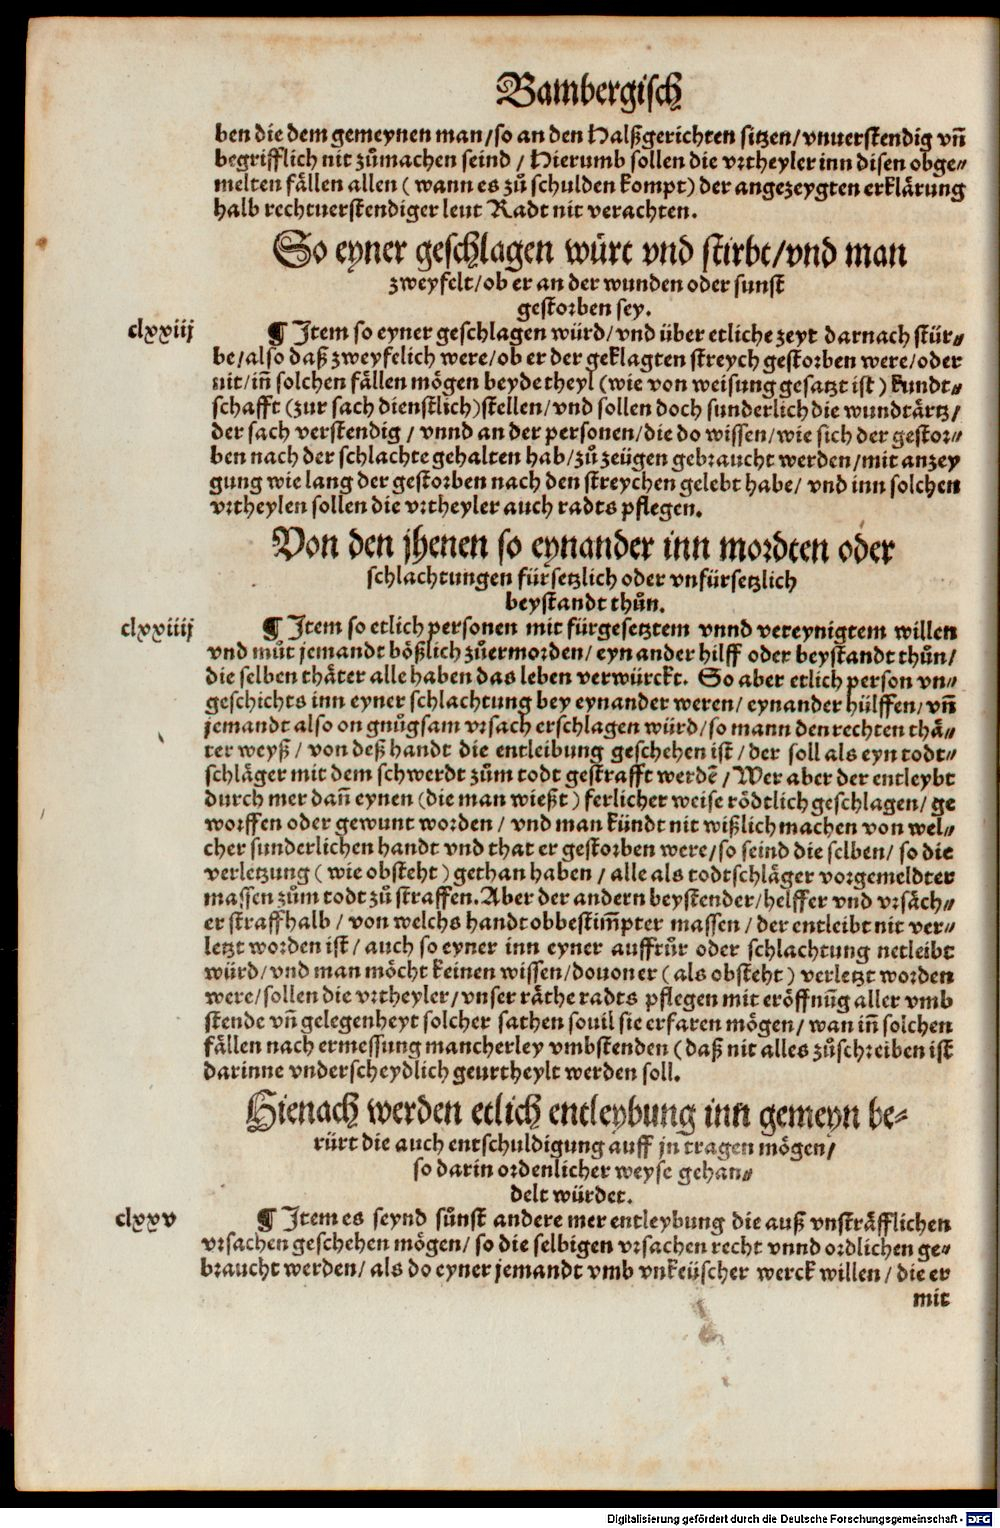 Bambergisch
ben die dem gemeynen man/so an den Halßgerichten sitzen/vnuerstendig vñ
begrifflich nit zůmachen seind / Hierumb sollen die vrtheyler inn disen obge⸗
melten fällen allen ( wann es zů schulden kompt) der angezeygten erklärung
halb rechtuerstendiger leut Radt nit verachten.
So eyner geschlagen würt vnd stirbt/vnd man
zweyfelt/ob er an der wunden oder sunst
gestorben sey.
clxxiij
¶ Item so eyner geschlagen würd/vnd über etliche zeyt darnach stür⸗
be/also daß zweyfelich were/ob er der geklagten streych gestorben were/oder
nit/iñ solchen fällen mögen beyde theyl (wie von weisung gesatzt ist) kundt⸗
schafft (zur sach dienstlich)stellen/vnd sollen doch sunderlich die wundtärtz/
der sach verstendig / vnnd an der personen/die do wissen/wie sich der gestor⸗
ben nach der schlachte gehalten hab/zů zeügen gebraucht werden/mit anzey
gung wie lang der gestorben nach den streychen gelebt habe/ vnd inn solchen
vrtheylen sollen die vrtheyler auch radts pflegen.
Von den jhenen so eynander inn mordten oder
schlachtungen fürsetzlich oder vnfürsetzlich
beystandt thůn.
clxxiiij
¶ Item so etlich personen mit fürgesetztem vnnd vereynigtem willen
vnd můt jemandt bößlich zůermorden/ eyn ander hilff oder beystandt thůn/
die selben thäter alle haben das leben verwürckt. So aber etlich person vn⸗
geschichts inn eyner schlachtung bey eynander weren/ eynander hülffen/vñ
jemandt also on gnůgsam vrsach erschlagen würd/so mann den rechten thä⸗
ter weyß / von deß handt die entleibung geschehen ist / der soll als eyn todt⸗
schläger mit dem schwerdt zům todt gestrafft werdē / Wer aber der entleybt
durch mer dañ eynen (die man wießt) ferlicher weise tödtlich geschlagen/ ge
worffen oder gewunt worden / vnd man kündt nit wißlich machen von wel⸗
cher sunderlichen handt vnd that er gestorben were/so seind die selben/ so die
verletzung (wie obsteht) gethan haben / alle als todtschläger vorgemeldter
massen zům todt zů straffen. Aber der andern beystender/helffer vnd vrsäch⸗
er straffhalb / von welchs handt obbestim̃pter massen / der entleibt nit ver⸗
letzt worden ist / auch so eyner inn eyner auffrůr oder schlachtung netleibt
würd/vnd man möcht keinen wissen/douon er ( als obsteht ) verletzt worden
were/sollen die vrtheyler/vnser räthe radts pflegen mit eröffnūg aller vmb
stende vñ gelegenheyt solcher sathen souil sie erfaren mögen/ wan iñ solchen
fällen nach ermessung mancherley vmbstenden (daß nit alles zůschreiben ist
darinne vnderscheydlich geurtheylt werden soll.
Hienach werden etlich entleybung inn gemeyn be⸗
rürt die auch entschuldigung auff jn tragen mögen/
so darin ordenlicher weyse gehan⸗
delt würdet.
clxxv
¶ Item es seynd sůnst andere mer entleybung die auß vnsträfflichen
vrsachen geschehen mögen/ so die selbigen vrsachen recht vnnd ordlichen ge⸗
braucht werden/ als do eyner jemandt vmb vnkeüscher werck willen / die er
mit
Digitalisierung gefördert durch die Deutsche Forschungsgemeinschaft - DFG